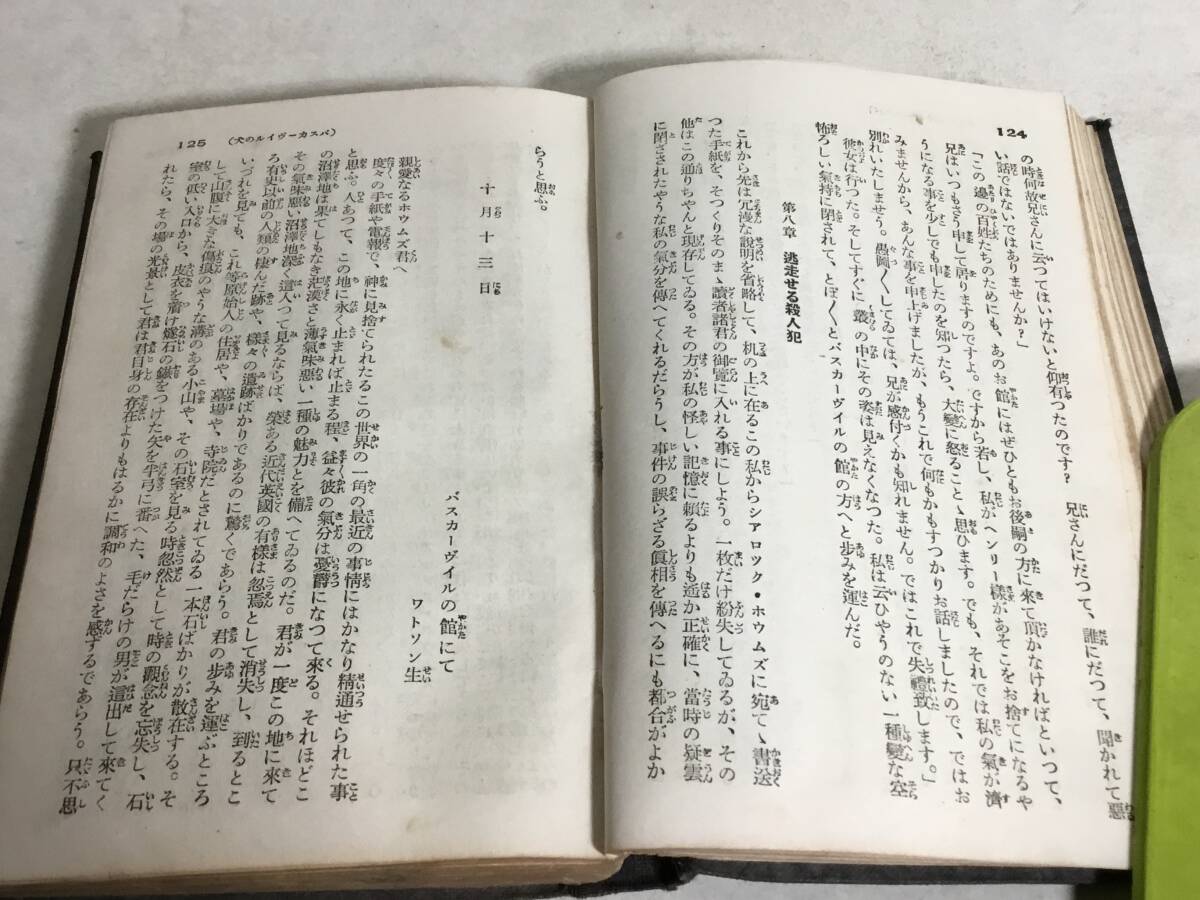 124
の時何故兄さんに云つてはいけないと仰有つたのです? 兄さんにだつて、誰にだつて、聞かれて惡
い話ではないではありませんか?」
「この邊の百姓たちのためにも、あのお館にはぜひともお後嗣の方に來て頂かなければといつて、
兄はいつもさう申して居りますのですよ。ですから若し、私がヘンリー樣があそこをお捨てになるや
うになる事を少しでも申したのを知つたら、大變に怒ること丶思ひます。でも、それでは私の氣が濟
みませんから、あんな事を申上げましたが、もうこれで何もかもすつかりお話しましたので、ではお
別れいたしませう。愚圖〱してゐては、兄が感付くかも知れません。ではこれで失禮致します。」
彼女は行つた。そしてすぐに叢の中にその姿は見えなくなつた。私は云ひやうのない一種變な空
怖ろしい氣持に閉されて、とぼ〱とバスカーヴイルの館の方へと歩みを運んだ。
第八章 逃走せる殺人犯
これから先は冗漫な說明を省略して、机の上に在るこの私からシアロック・ホウムズに宛て丶書送
つた手紙を、そつくりそのま丶讀者諸君の御覽に入れる事にしよう。一枚だけ紛失してゐるが、その
他はこの通りちやんと現存してゐる。その方が私の怪しい記憶に賴るよりも遙か正確に、當時の疑雲
に閉ざされたやうな私の氣分を傳へてくれるだらうし、事件の誤らざる眞相を傳へるにも都合がよか
125
(バスカーヴイルの犬)
らうと思ふ。
十月十三日
バスカーヴイルの館にて
ワトソン生
親愛なるホウムズ君へ
度々の手紙や電報で、神に見捨てられたるこの世界の一角の最近の事情にはかなり精通せられた事
と思ふ。人あつて、この地に永く止まれば止まる程、益々彼の氣分は憂鬱になつて來る。それほどこ
の沼澤地は果てしもなき茫漠さと薄氣味惡い一種の魅力とを備へてゐるのだ。君が一度この地に來て
その氣味惡い沼澤地深く這入つて見るならば、榮ある近代英國の有樣は忽焉として消失し、到るとこ
ろ有史以前の人類の棲んだ跡や、樣々の遺跡ばかりであるのに驚くであらう。君の歩みを運ぶところ
いづれを見ても、これ等原始人の住居や、墓場や、寺院だとされてゐる一本石ばかりが散在する。そ
して山腹に大きな傷痕のやうな溝のある小山や、その石室を見る時忽然として時の觀念を忘失し、石
室の低い入口から、皮衣を着け燧石の鏃をつけた矢を半弓に番へた、毛だらけの男が這出して來てく
れたら、その場の光景として君は君自身の存在よりもはるかに調和のよさを感ずるであらう。只不思